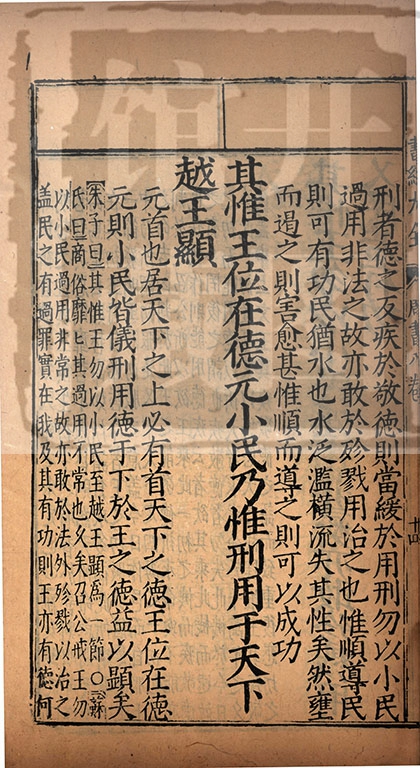 刑者德之反疾於敬德則當緩於用刑勿以小民
過用非法之故亦敢於殄戮用治之也惟順導民
則可有功民猶水也水泛濫橫流失其性矣然壅
而遏之則害愈甚惟順而導之則可以成功
其惟王位在德元小民乃惟刑用于天下
越王顯
元首也居天下之上必有首天下之德王位在德
元則小民皆儀刑用德于下於王之德益以顯矣
朱子曰其惟王勿以小民至越王顯爲一節○蘇
氏曰商俗靡匕其過用不常也久矣召公戒王勿
以小民過用非常之故亦敢於法外殄戮以治之
蓋民之有過罪實在我及其有功則王亦有德何